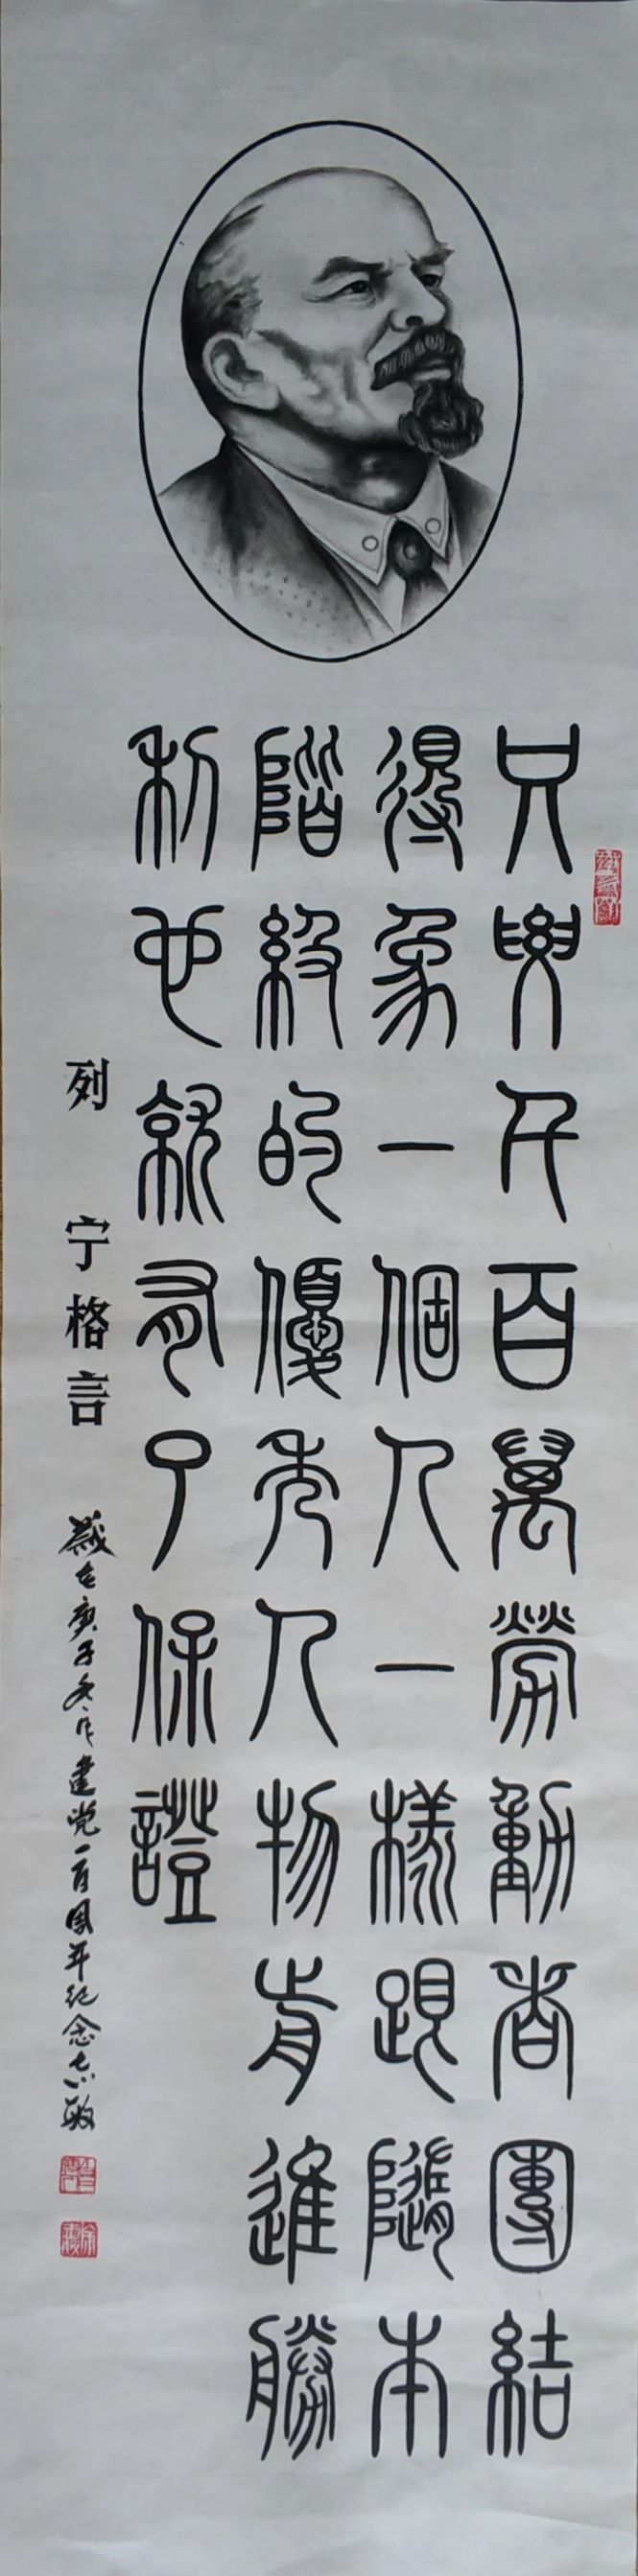 只要千百萬勞動者團結
得象一個人一樣跟隨本
階級的優秀人物前進勝
利也就有了保證
列宁格言
歲在庚子冬作建党一百周年纪念志敏